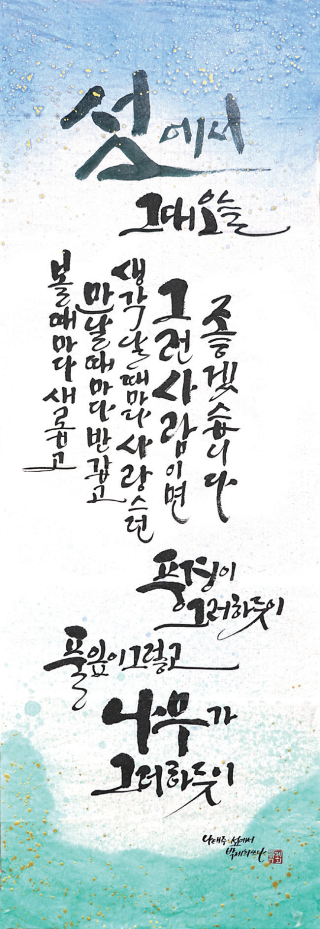 섬에서
그대 오늘
볼때마다 새롭고
만날때마다 반갑고
생각날때마다 사랑스런
그런 사람이면
좋겠습니다
풍경이
그러하듯이
풀잎이 그렇고
나무가
그러하듯이
나태주 섬에서